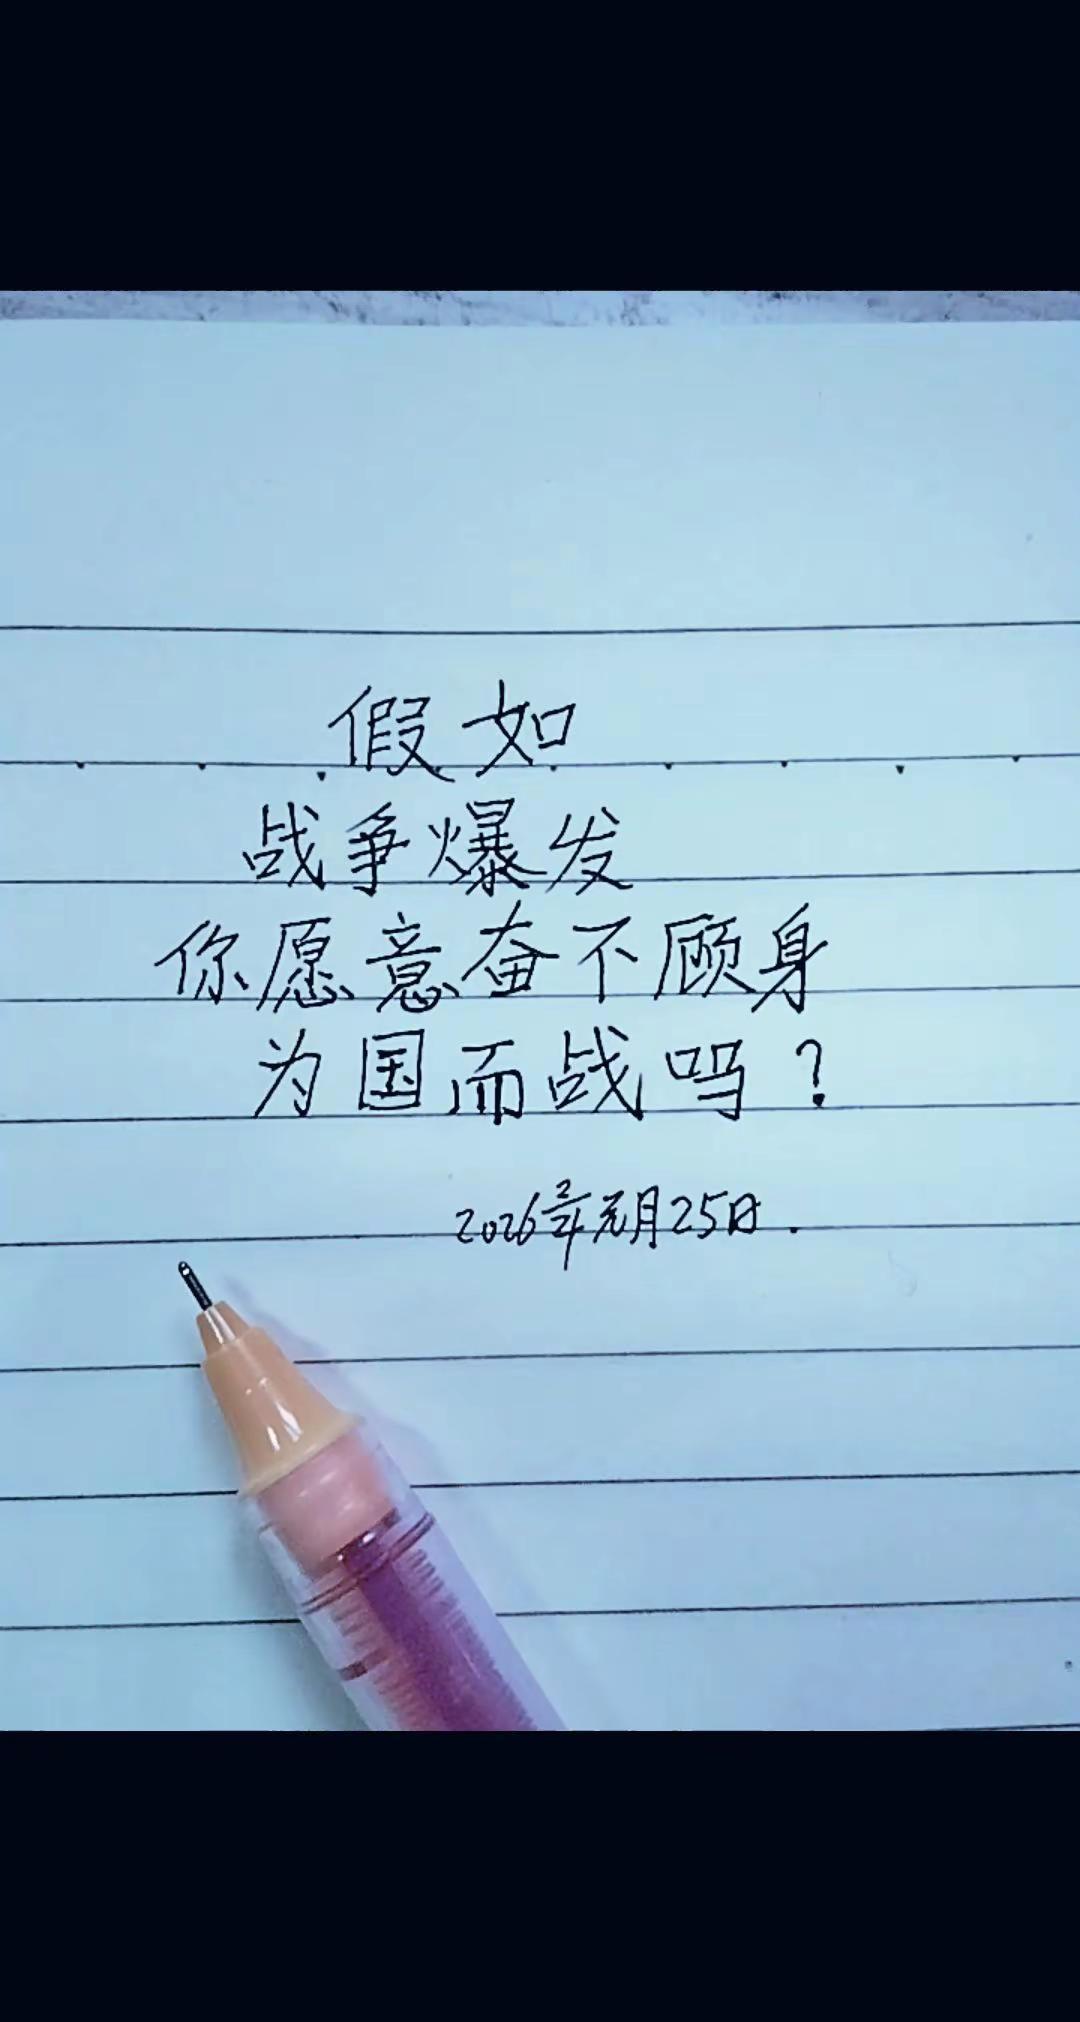 假如
战争爆发
你愿意奋不顾身
为国而战吗？
2026年元月25日.